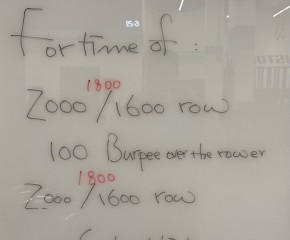 For time of :
1800
2000/1600 row
100 Burpee over the rower
1800
2000/1600 row